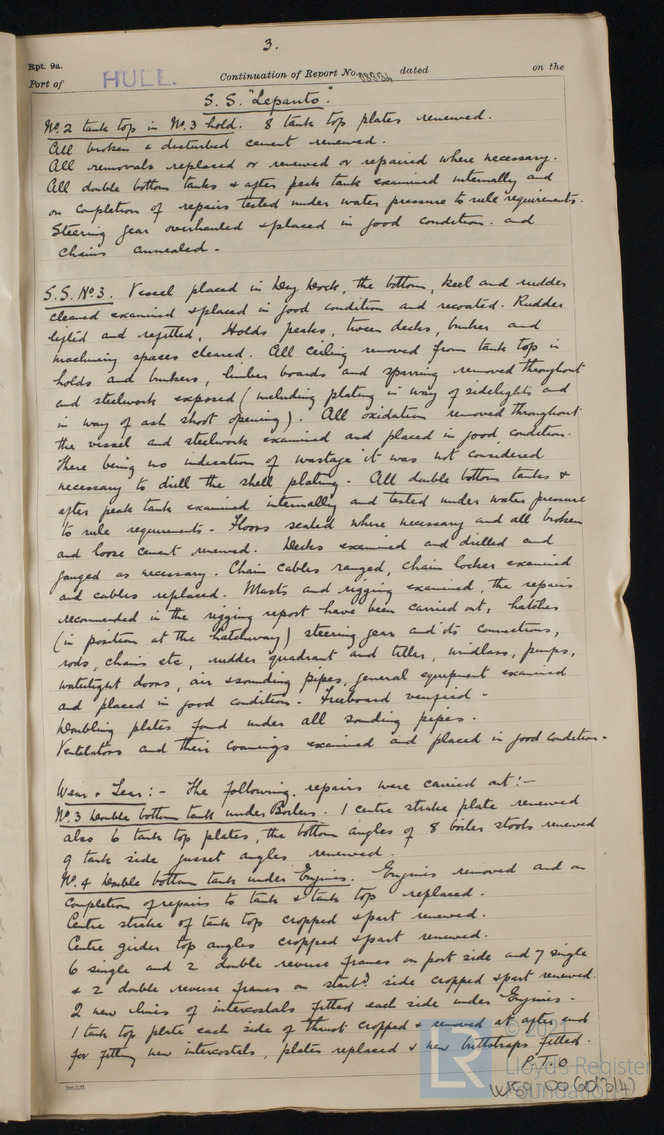 3.
Rpt. 9a.
Port of HULL. Continuation of Report No. dated on the
S.S. "Lepanto".
No. 2 tank top in No. 3 hold. 8 tank top plates renewed.
All broken & disturbed cement renewed.
All removals replaced or renewed or repaired where necessary.
All double bottom tanks & after peak tank examined internally and
on completion of repairs tested under water pressure to rule requirements.
Steering gear overhauled & placed in good condition. and
chains annealed -
S.S. No. 3. Vessel placed in Dry Dock, the bottom, keel and rudder
cleaned examined & placed in good condition and recoated. Rudder
lifted and refitted, Holds peaks, tween decks, bunker and
machinery spaces cleared. All ceiling removed from tank top in
holds and bunkers, limber boards and sparring removed throughout
and steelwork exposed (including plating in way of sidelights and
in way of ash shoot opening). All oxidation removed throughout
the vessel and steelwork examined and placed in good condition.
There being no indication of wastage it was not considered
necessary to drill the shell plating. All double bottom tanks &
after peak tank examined internally and tested under water pressure
to rule requirements - Floors scaled where necessary and all broken
and loose cement renewed. Decks examined and drilled and
gauged as necessary. Chain cables ranged, chain locker examined
and cables replaced. Masts and rigging examined, the repairs
recommended in the rigging report have been carried out, hatches
(in position at the hatchway) steering gear and its connections,
rods, chains etc, rudder quadrant and tiller, windlass, pumps,
watertight doors, air & sounding pipes, general equipment examined
and placed in good condition. Freeboard verified -
Doubling plates found under all sounding pipes.
Ventilators and their coamings examined and placed in good condition -
Wear & Tear :- The following repairs were carried out :-
No. 3 Double bottom tank under Boilers. 1 centre strake plate renewed
also 6 tank top plates, the bottom angles of 8 boiler stools renewed
9 tank side gusset angles renewed.
No. 4 Double bottom tank under Engines. Engines removed and on
completion of repairs to tank & tank top replaced.
Centre strake of tank top cropped & part renewed.
Centre girder top angles cropped & part renewed.
6 single and 2 double reverse frames on port side and 7 single
& 2 double reverse frames on starbd. side cropped & part renewed.
2 new lines of intercostals fitted each side under Engines -
1 tank top plate each side of thrust cropped & removed at after end
for fitting new intercostals, plates replaced & new buttstraps fitted.
P.T.O
© 2021
LR
Lloyd's Register
Foundation